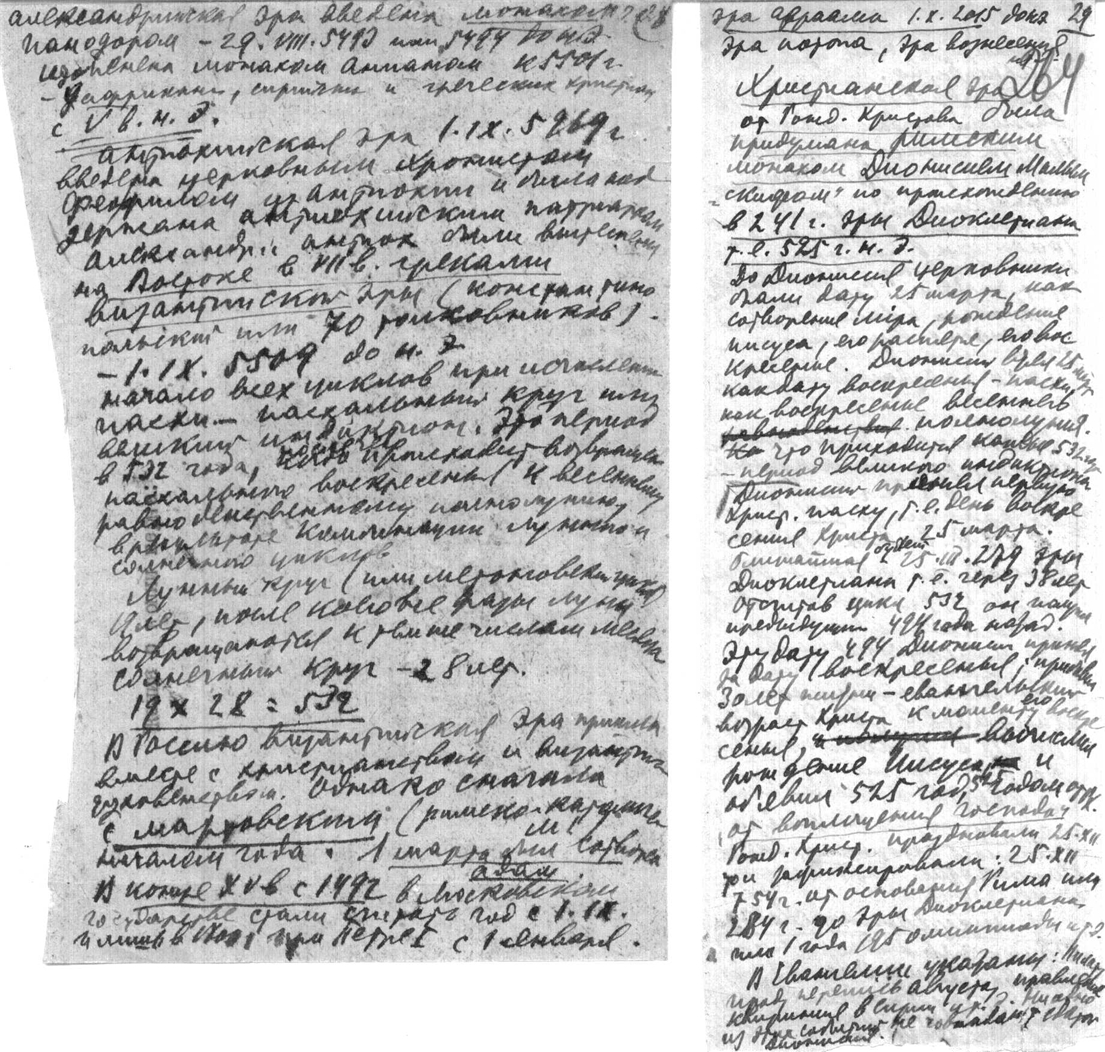 александрийская эра введена монахом
Панодором - 29.VIII.5493 или 5494 до н.э.
изменена монахом Аннианом к 5501 г.
- У африкан, сирийских и греческих христиан
с V в. н. э.
антиохийская эра 1.IX.5969 г
введена церковным хронистом
Феофилом из Антиохии и была под
держана антиохийским патриархом
Александрий. антиох были вытеснены
на Востоке в VII в. греками
византийской эры (константино
польский или 70 толковников).
- 1.IX.5509 до н. э
начало всех циклов при исчислении
пасхи - пасхальный круг или
великий индиктион. Это период
в 532 года, происходит возвращен
пасхального воскресенья к весеннему
равноденственному полнолунию,
в результате комбинации лунного и
солнечного циклов
Лунный круг (или метоновский цикл)
19 лет, после которые фазы луны
возвращаются к тем же числам месяца
Солнечный круг - 28 лет.
19 х 28 = 532
В Россию византийская эра пришла
вместе с христианством и византий
духовенством. Однако сначала
с мартовский (римско-католиче
началом года. 1 марта был сотворен
адам
В конце XV в с 1492 в Московском
государстве стали считать год с 1.IX.
и лишь в при Петре I с 1 января.
эра Авраама 1.X.2015 до нэ 29
эра потопа, эра вознесения
264
Христианская эра
от Рожд. Христова была
придумана римским
монахом Дионисием Малым
"скифом" по происхождению
в 241 г. эры Диоклетиана
т.е. 525 г. н. э.
До Дионисия церковники
брали дату 25 марта, как
сотворение мира, рождение
иисуса, его распятие, его вос
кресенье. Дионисий взял 25 марта
как дату воскресенья - пасхи,
как воскресенье весеннего
полнолуния.
что приходится каждые 532 года
- период великого индиктиона
Дионисий первую
Христ. пасху, т.е. день воскре
сения Христа 25 марта.
ближайшая будет 25.III.279 эры
Диоклетиана т.е. через 38 лет
отсчитав цикл 532 он получ
предыдущий 494 года назад
Эту дату 494 Дионисий принял
за дату воскресенья, прибавил
30 лет жизни - евангельский
возраст Христа к моменту его воскре
сенья, вычислил
рождение Иисуса и
объявил 525 год, 525 годом от р.
"от воплощения Господа"
Рожд. Христ. праздновали 25.XII
и зафиксировали: 25.XII
754 г. от основания Рима или
284 г. до эры Диоклетиана
или 1 года 195 олимпиады и т.д.
В Евангелии указаны:
перепись августа, правление
квириния в сирии и т. д. Ни одно
из этих событий не совпадают с датой
Дионисия.